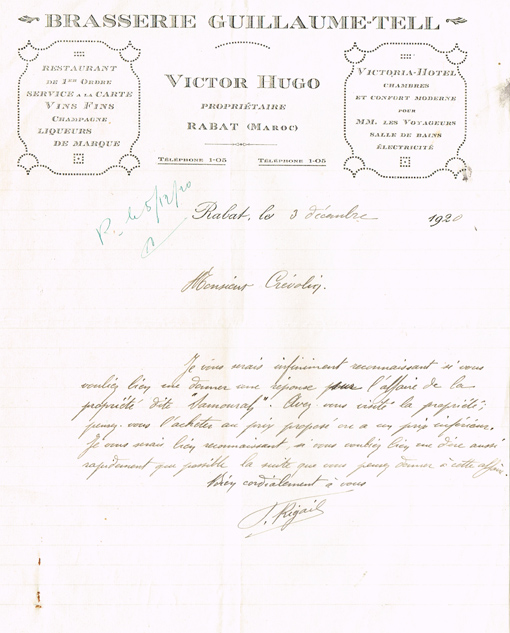 BRASSERIE GUILLAUME-TELL
RESTAURANT
DE 1ER ORDRE
SERVICE A LA CARTE
VINS FINS
CHAMPAGNE
LIQUEURS
DE MARQUE
VICTOR HUGO
PROPRIÉTAIRE
RABAT (MAROC)
TÉLÉPHONE 1-05 TÉLÉPHONE 1-05
VICTORIA-HOTEL
CHAMBRES
ET CONFORT MODERNE
POUR
MM. LES VOYAGEURS
SALLE DE BAINS
ÉLECTRICITÉ
R. le 5/12/20
Rabat, le 3 décembre 1920
Monsieur Crévolin.
Je vous serais infiniment reconnaissant si vous
vouliez bien me donner une réponse pour l'affaire de la
propriété dite "Samourah". Avez-vous visité la propriété;
pensez-vous l'acheter au prix proposé ou a un prix inférieur.
Je vous serais bien reconnaissant, si vous vouliez bien me dire aussi
rapidement que possible la suite que vous pensez donner à cette affaire.
Bien cordialement à vous
J. Rigail